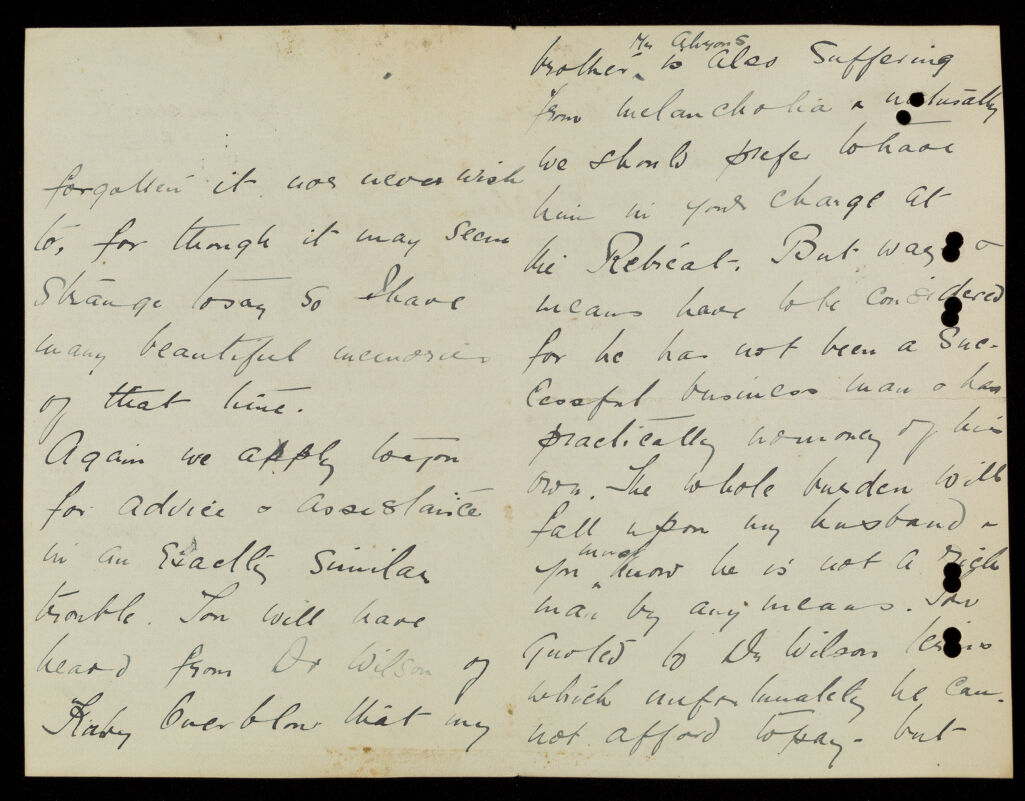 forgotten it nor never wish
to, for though it may seem
strange to say so I have
many beautiful memories
of that time.
Again we apply to you
for advice & assistance
in an Exactly similar
trouble. You will have
heard from Dr Wilson of
Kirby Overblow that my
Mr
brother is also suffering
from melancholia & naturally
we should prefer to have
him in your charge at
the Retreat. But ways &
means have to be considered
for he has not been a Suc-
cessful business man & has
practically no money of his
own. The whole burden will
fall upon my husband &
must
you know he is not a rich
man by any means. You
quoted to Dr Wilson terms
which unfortunately he can-
not afford to pay - but